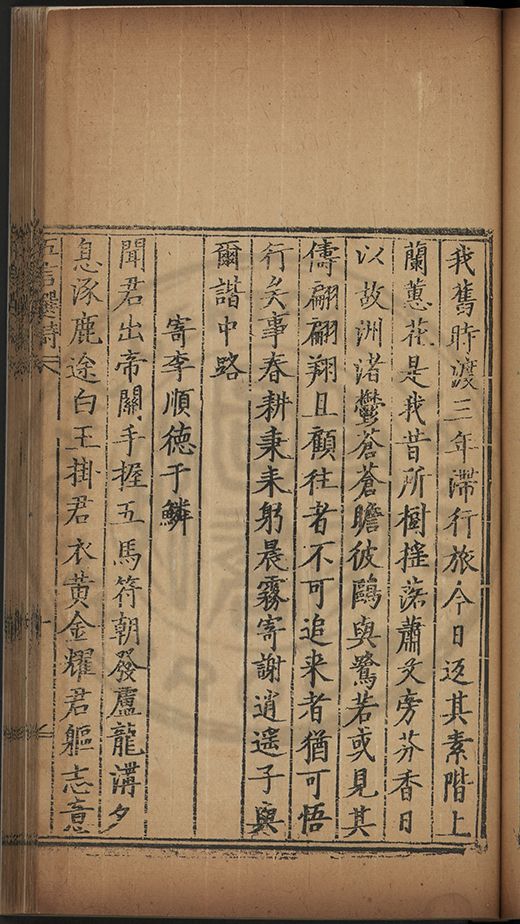 我舊時渡三年滯行旅今日返其素階上
蘭蕙花是我昔所樹搖落蕭艾旁芬香日
以故洲渚鬱蒼蒼瞻彼鷗與鷺若或見其
儔翩翩翔且顧往者不可追来者猶可悟
行矣事春耕秉耒躬晨霧寄謝逍遥子與
爾諧中路
寄李順德于鱗
聞君出帝關手握五馬符朝發蘆龍溝夕
息涿鹿途白玉掛君衣黄金耀君軀志意
五言選詩